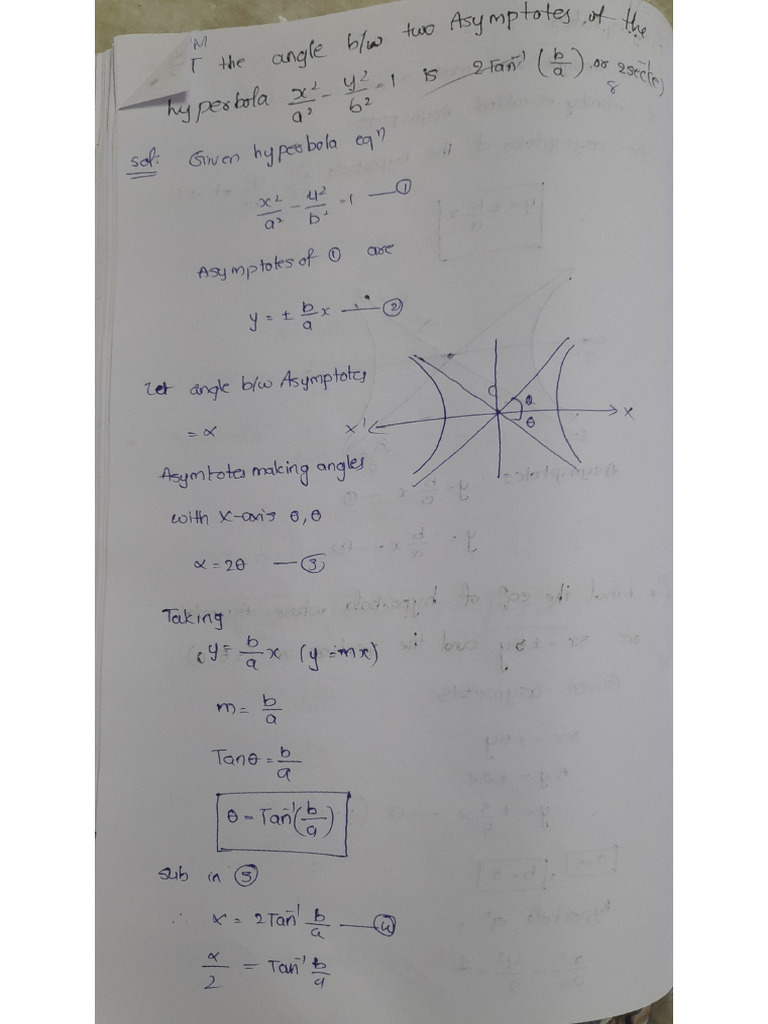 M
T the angle b/w two Asymptotes of the
hyperbola x²/a² - y²/b² = 1 is 2Tan⁻¹ (b/a) or 2sec⁻¹(e)
Sol: Given hyperbola eqn
x²/a² - y²/b² = 1 — ①
Asymptotes of ① are
y = ± b/a x — ②
Let angle b/w Asymptotes
= α
X' X
θ
θ
Asymtotes making angles
with X-axis θ, θ
α = 2θ — ③
Taking
y = b/a x (y = mx)
m = b/a
Tanθ = b/a
θ = Tan⁻¹(b/a)
Sub in ③
∴ α = 2Tan⁻¹ b/a — ④
α/2 = Tan⁻¹ b/a